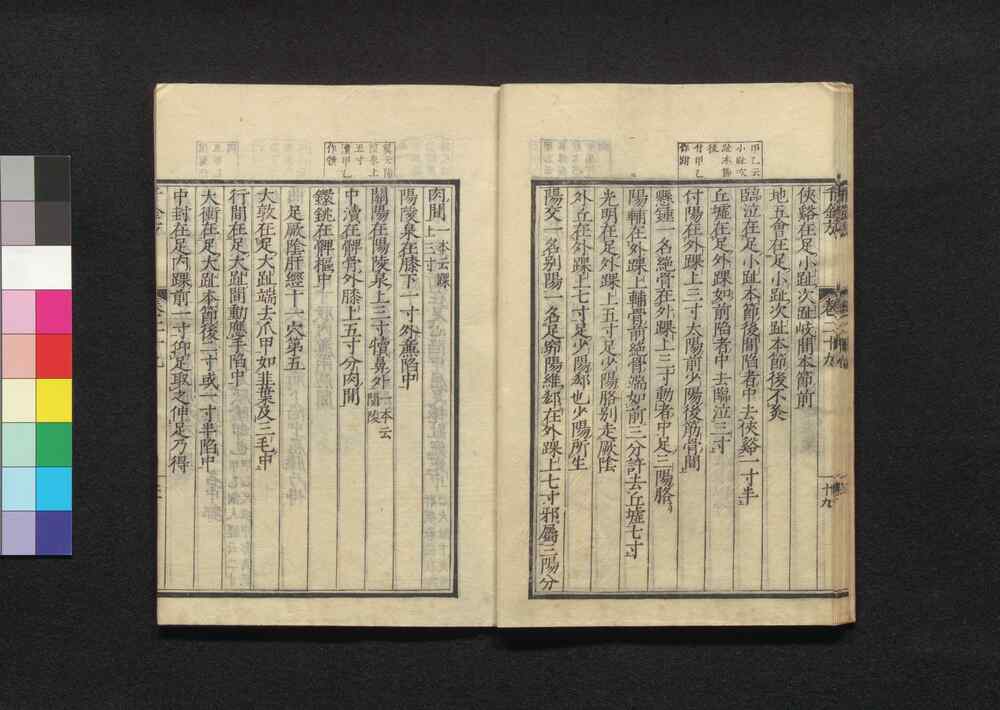 千金方 卷二十九 十九
甲乙云
小趾次
趾本節
後
付甲乙
作跗
俠谿在足小趾次趾岐間本節前
地五會在足小趾次趾本節後不灸
臨泣在足小趾次趾本節後間陷者中去俠谿一寸半
丘墟在足外踝如前陷者中去臨泣三寸
付陽在外踝上三寸太陽前少陽後筋骨間
懸鍾一名絶骨在外踝上三寸動者中足三陽胳
陽輔在外踝上輔骨前絶骨端如前三分許去丘墟七寸
光明在足外踝上五寸足少陽胳别走厥陰
外丘在外踝上七寸足少陽郄也少陽所生
陽交一名别陽一名足窌陽維郄在外踝上七寸邪屬三陽分
陵泉上
五寸
瀆甲乙
肉間一本云踝上三寸
陽陵泉在膝下一寸外廉陷中
關陽在陽陵泉上三寸犢鼻外一本云關陵
中瀆在髀骨外膝上五寸分肉間
鐶銚在髀樞中
足厥陰肝經十一穴第五
大敦在足大趾端去爪甲如韭葉及三毛中
行間在足大趾間動應手陷中
大衝在足大趾本節後二寸或一寸半陷中
中封在足内踝前一寸仰足取之伸足乃得